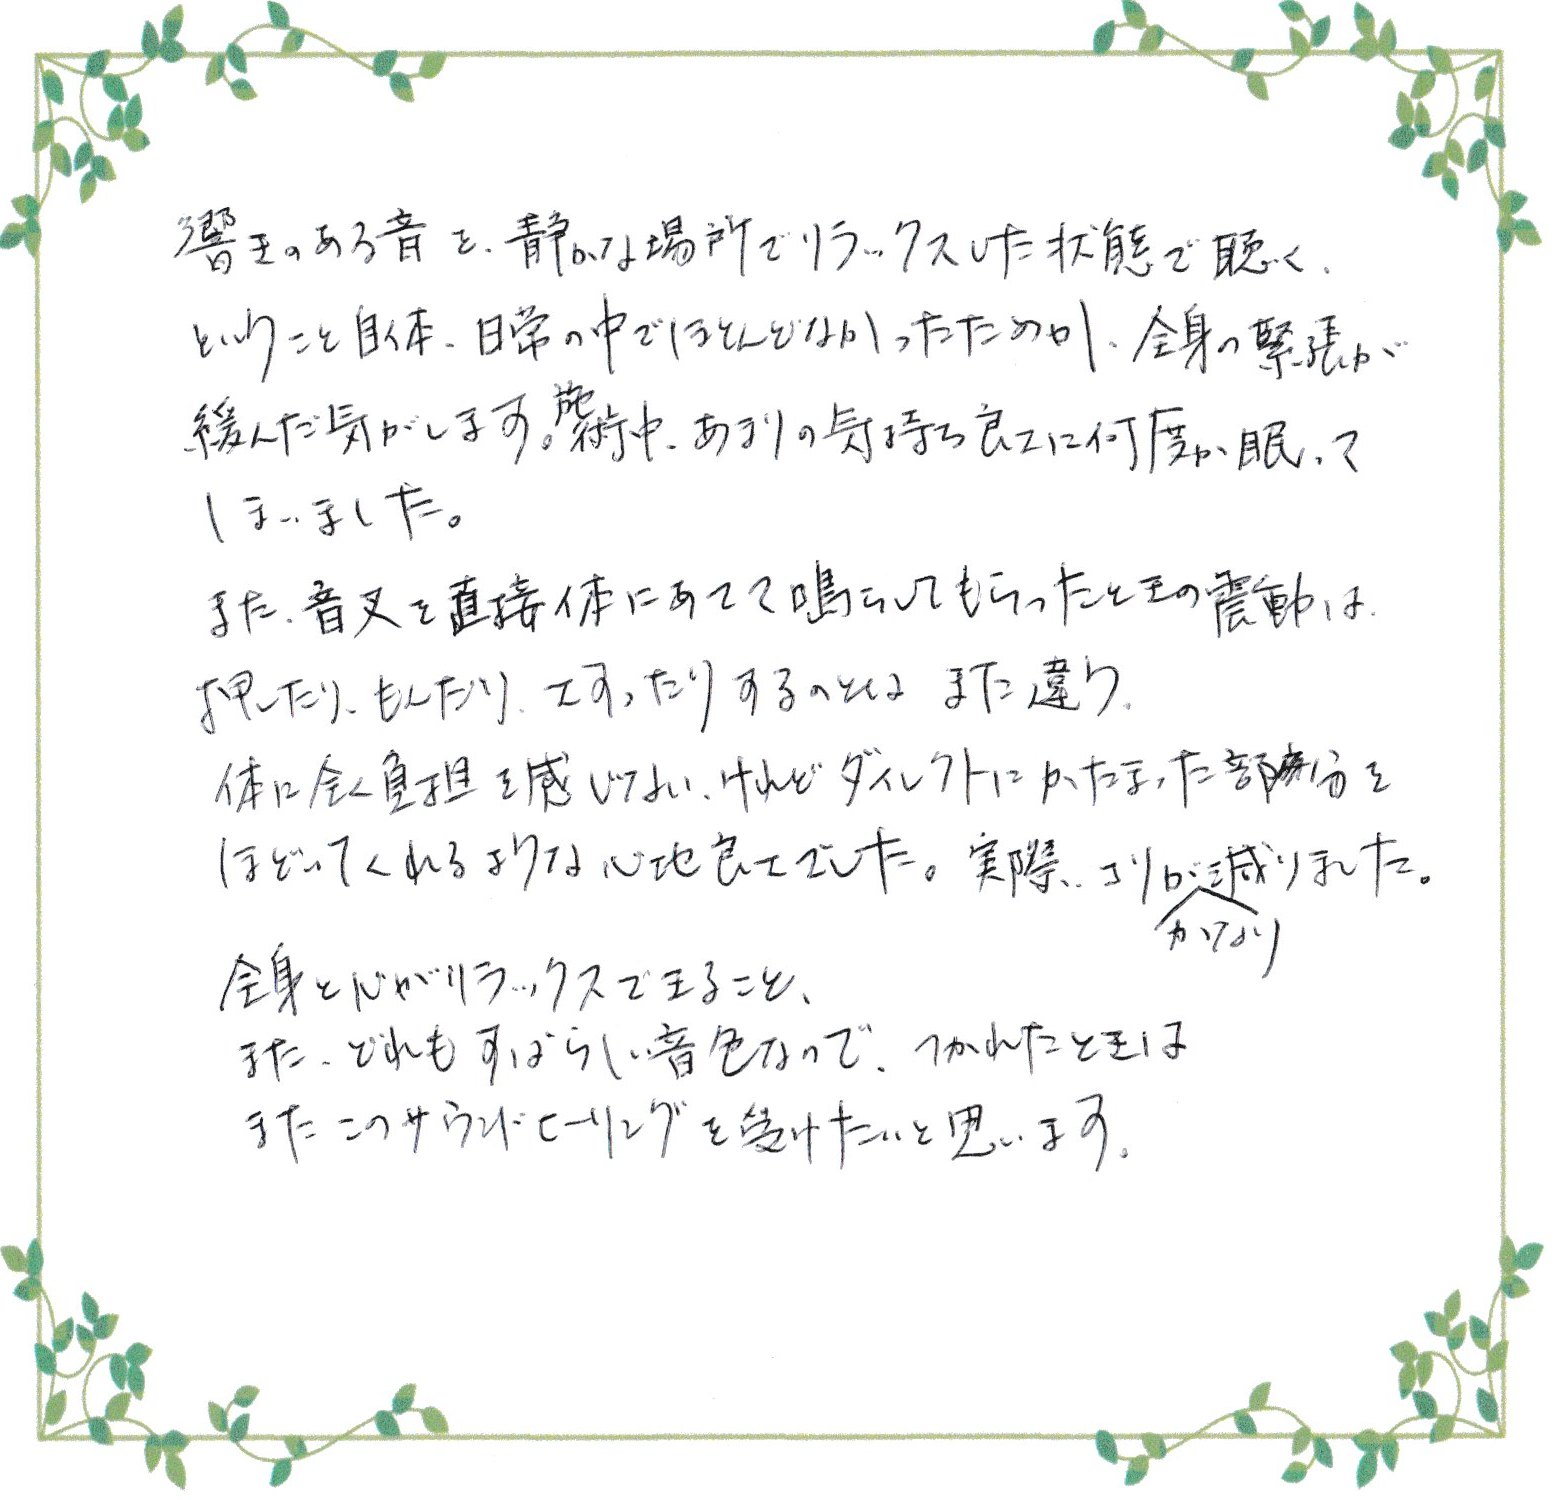 響きのある音を、静かな場所でリラックスした状態で聴く、
ということ自体、日常の中でほとんどなかったためか、全身の緊張が
緩んだ気がします。施術中、あまりの気持ち良さに何度か眠って
しまいました。
また、音叉を直接体にあてて鳴らしてもらったときの震動は、
押したり、もんだり、さすったりするのとは また違い、
体に全く負担を感じない、けれどダイレクトにかたまった部分を
ほどいてくれるような心地良さでした。実際、コリが減りました。
かなり
全身と心がリラックスできること、
また、どれもすばらしい音色なので、つかれたときは
またこのサウンドヒーリングを受けたいと思います。